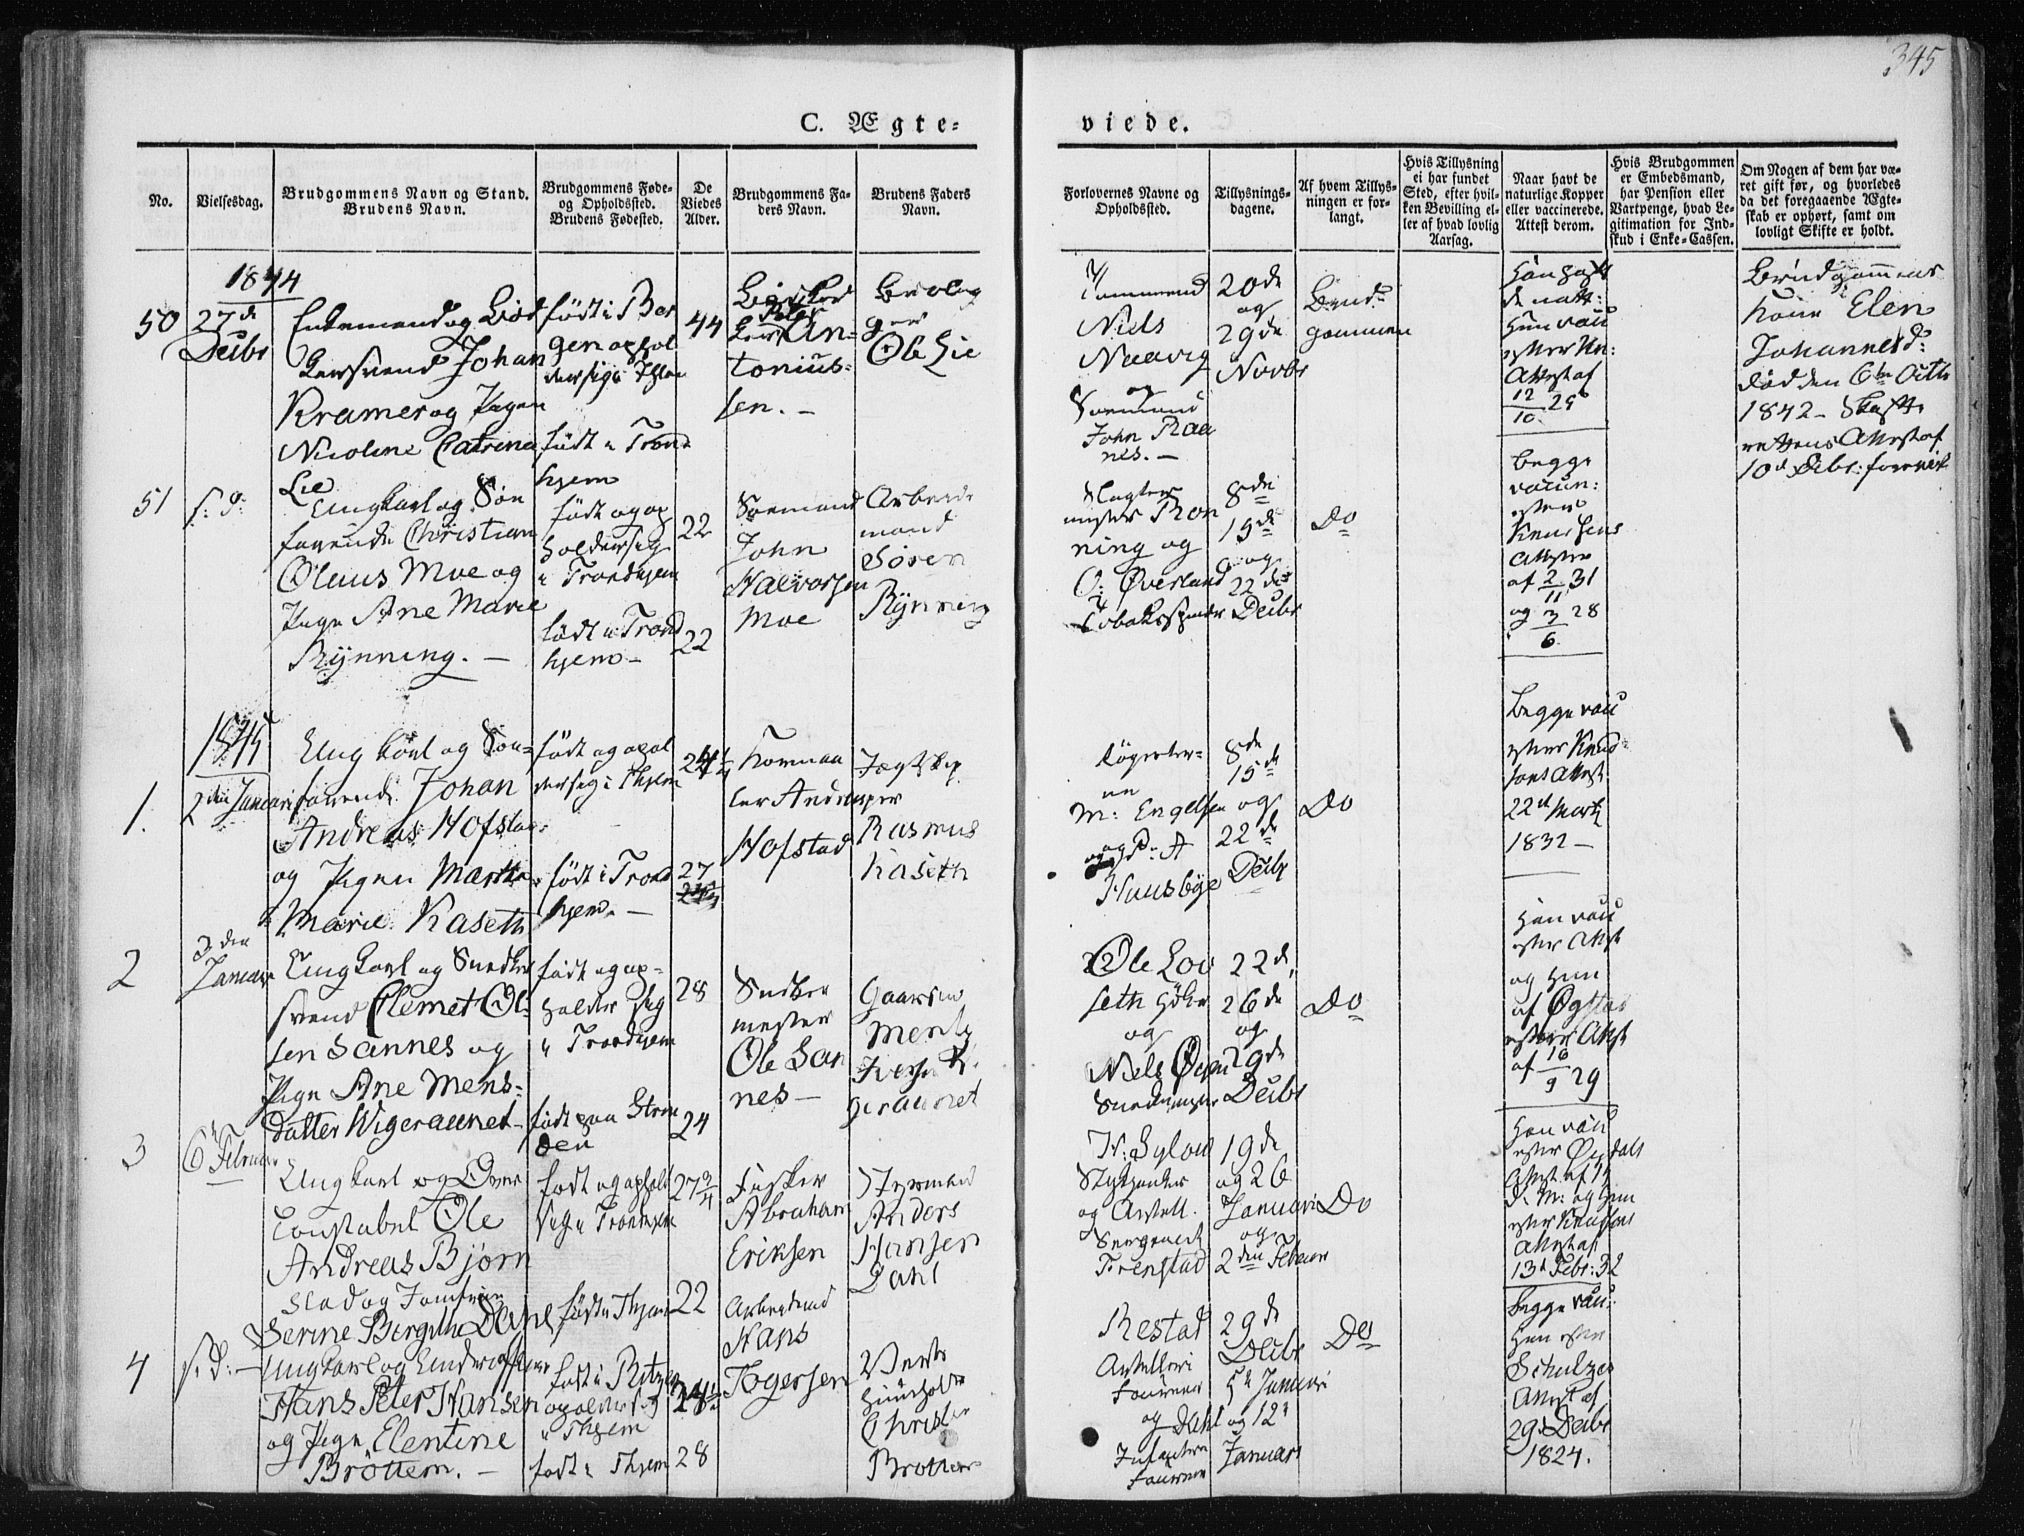 345
C. Ægte-
viede.
No.
Vielsesdag.
Brudgommens Navn og Stand.
Brudens Navn.
Brudgommens Føde-
og Opholdssted.
Brudens Fødested.
De
Viedes
Alder.
Brudgommens Fa-
ders Navn.
Brudens Faders
Navn.
Forlovernes Navne og
Opholdssted.
Tillysnings-
dagene.
Af hvem Tillys-
ningen er for-
langt.
Hvis Tillysning
ei har fundet
Sted, efter hvil-
ken Bevilling el-
ler af hvad lovlig
Aarsag.
Naar havt de
naturlige Kopper
eller vaccinerede.
Attest derom.
Hvis Brudgommen
er Embedsmand,
har Pension eller
Vartpenge, hvad Le-
gitimation for Ind-
skud i Enke-Cassen.
Om Nogen af dem har væ-
ret gift før, og hvorledes
da det foregaaende Ægte-
skab er ophørt, samt om
lovligt Skifte er holdt.
1844
50
27de
Decbr
Enkemand og
Johan
Kramer og Pigen
Nicoline Catrina
Lie
født i Ber
gen ophol
der sig i Thjem
født i Trond
hjem
44
Peter
An-
tonius-
sen. –
Ole Lie
Niels
Naavig
og
John Raa
nes. –
20de
og
29de
Novbr
Brud-
gommen
Attest af
12/10 29
Brudgommens
Kone Elen
Johannesd:
død den 6te Octb
1842 – Skifte
rettens Attest af
10d Decbr: foreviist
51
s: d:
Ungkarl og Søe
farende Christian
Olaus Moe og
Pige Ane Marie
Rÿnning. –
født og op
holder sig
i Trondhjem
født i Trond
hjem –
22
22
Søemand
John
Halvorsen
Moe
Arbeids
mand
Søren
Rÿnning
Slagter
mester Røn
ning og
O: Øverland
Tobaksspinder
8de
15de
og
22de
Decbr
Do
Begge
vaccin:
efter
Knudsens
Attester
af 2/11 31
og 3/6 28
1845
1.
2den Januari
Ungkarl og Søe-
farende Johan
Andreas Hofstad
og Pigen Martha
Marie Kaseth
født og ophol
der sig i Thjem
født i Trond
hjem. –
24¼
27
Andreas
Hofstad
Jægtskip
per
Rasmus
Kaseth
M: Engelsen
og
Huusbye
8de
15de
og
22de
Decbr
Do
Begge vacc
efter Knud-
sens Attest
22d Marts
1832 –
2
3den
Januar
Ungkarl og Snedker
svend Clemet Ol-
sen Sannes og
Pige Ane Mens-
datter Wigeraunet –
født og op-
holder sig
i Trondhjem
født paa Strin
den
28
24
Snedker
mester
Ole San
nes –
Gaardm
Mentz
geraunet
Ole Lov
seth
og
Niels
22d,
26de
og
29de
Decbr
Do
Han vacc
efter Attest
og Hun
af
efter Attest
af 16/9 29
3
6te Februar
Ungkarl og Over
Constabel Ole
Andreas Bjørn
stad og Jomfrue
Serine Bergithe Dahl
født og ophold
sig i Trondhjem
født i Thjem
27¾
22
Fisker
Abraham
Eriksen
Styrmand
Anders
Hansen
Dahl
H: Sylow
og Artill.
Sergeant
Frenstad
19de
og 26
Januari
og
2den Februar
Do
Han vacc
efter
Attest af
D. M: og Hun
efter Knudsens
Attest af
13d Febr: 32
4
s: d: –
Ungkarl og
Hans Peter Hansen
og Pige Elentine
Brøttem. –
født i
opholder sig
i Thjem
født i Thjem
24½
28
Arbeidsmd
Hans
Togersen
Verts
huusholder
Christen
Brøttem
Restad
Artilleri
Fourneer
og Dahl
Infanteri
Fourneer
29de
Decbr
5te Januari
og 12te
Januari
Do
Begge vacc:
Han efter
Schulzes
Attest af
29d Decbr
1824.